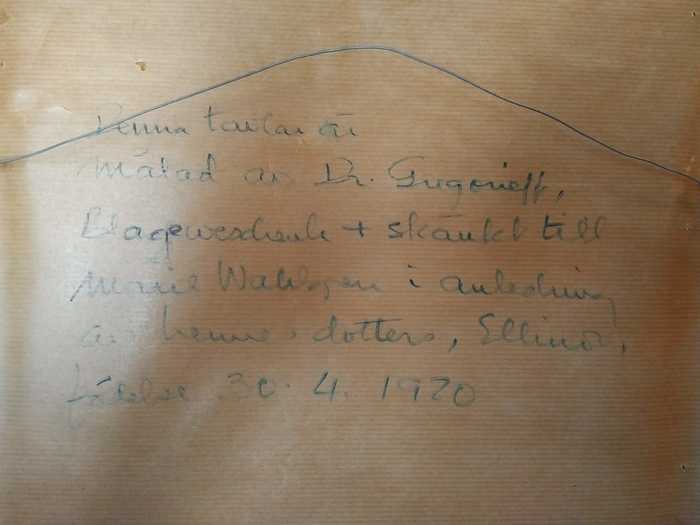 Denna tavlan är
målad av Dr. Gregorieff,
Blagoweschensk + skänkt till
Marie Wahlgren i anledning
av hennes dotters, Ellinor,
födelse 30. 4. 1920